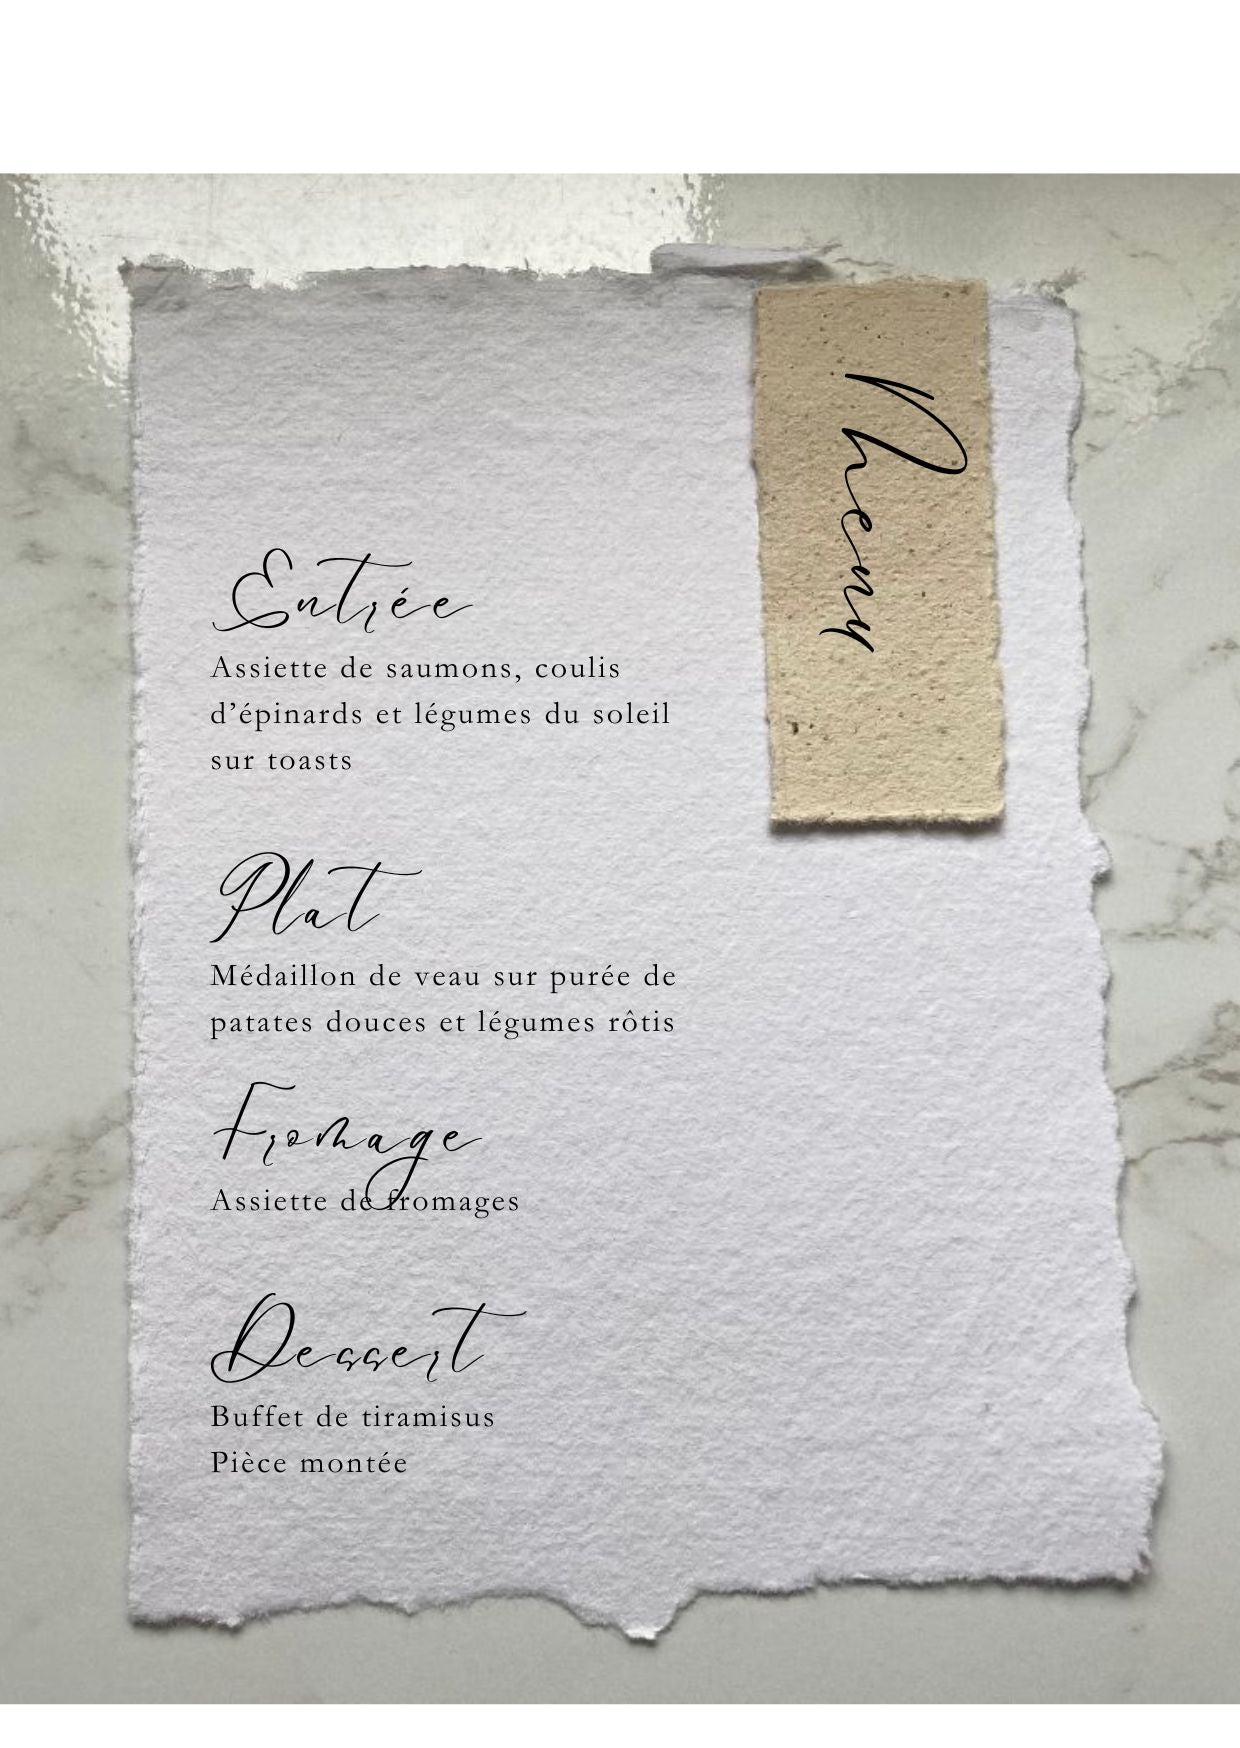 Menu
Entrée
Assiette de saumons, coulis
d’épinards et légumes du soleil
sur toasts
Plat
Médaillon de veau sur purée de
patates douces et légumes rôtis
Fromage
Assiette de fromages
Dessert
Buffet de tiramisus
Pièce montée